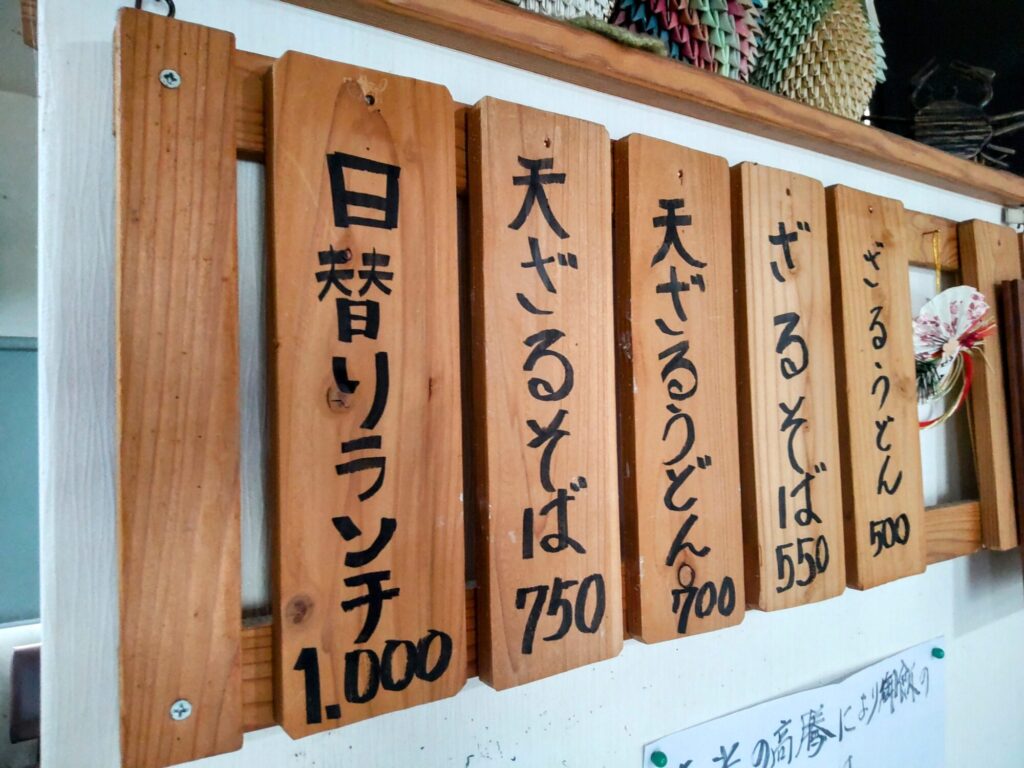 日替りランチ
1.000
天ざるそば
750
天ざるうどん
700
ざるそば
550
ざるうどん
500
の高騰により御飯の